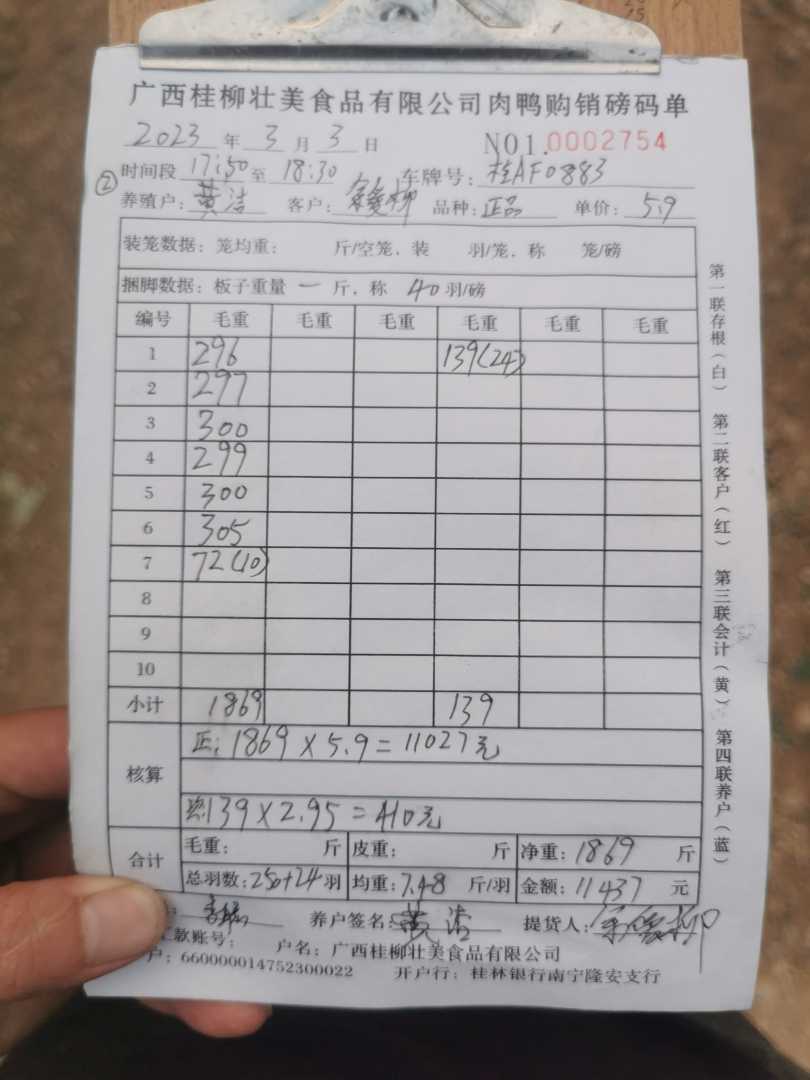 广西桂柳壮美食品有限公司肉鸭购销磅码单
2023 年 3 月 3 日 NO1.0002754
② 时间段 17:50 至 18:30 车牌号: 桂AF0883
养殖户: 黄洁 客户: 品种: 正品 单价: 5.9
装笼数据: 笼均重: 斤/空笼, 装 羽/笼, 称 笼/磅
捆脚数据: 板子重量 一 斤, 称 40 羽/磅
编号 毛重 毛重 毛重 毛重 毛重 毛重
1 296 139(24)
2 297
3 300
4 299
5 300
6 305
7 72(10)
8
9
10
小计 1869 139
核算
正: 1869 × 5.9 = 11027元
139 × 2.95 = 410元
合计
毛重: 斤 皮重: 斤 净重: 1869 斤
总羽数: 250+24 羽 均重: 7.48 斤/羽 金额: 11437 元
养户签名: 黄洁 提货人:
款账号: 户名: 广西桂柳壮美食品有限公司
户: 660000014752300022 开户行: 桂林银行南宁隆安支行
第一联存根(白) 第二联客户(红) 第三联会计(黄) 第四联养户(蓝)